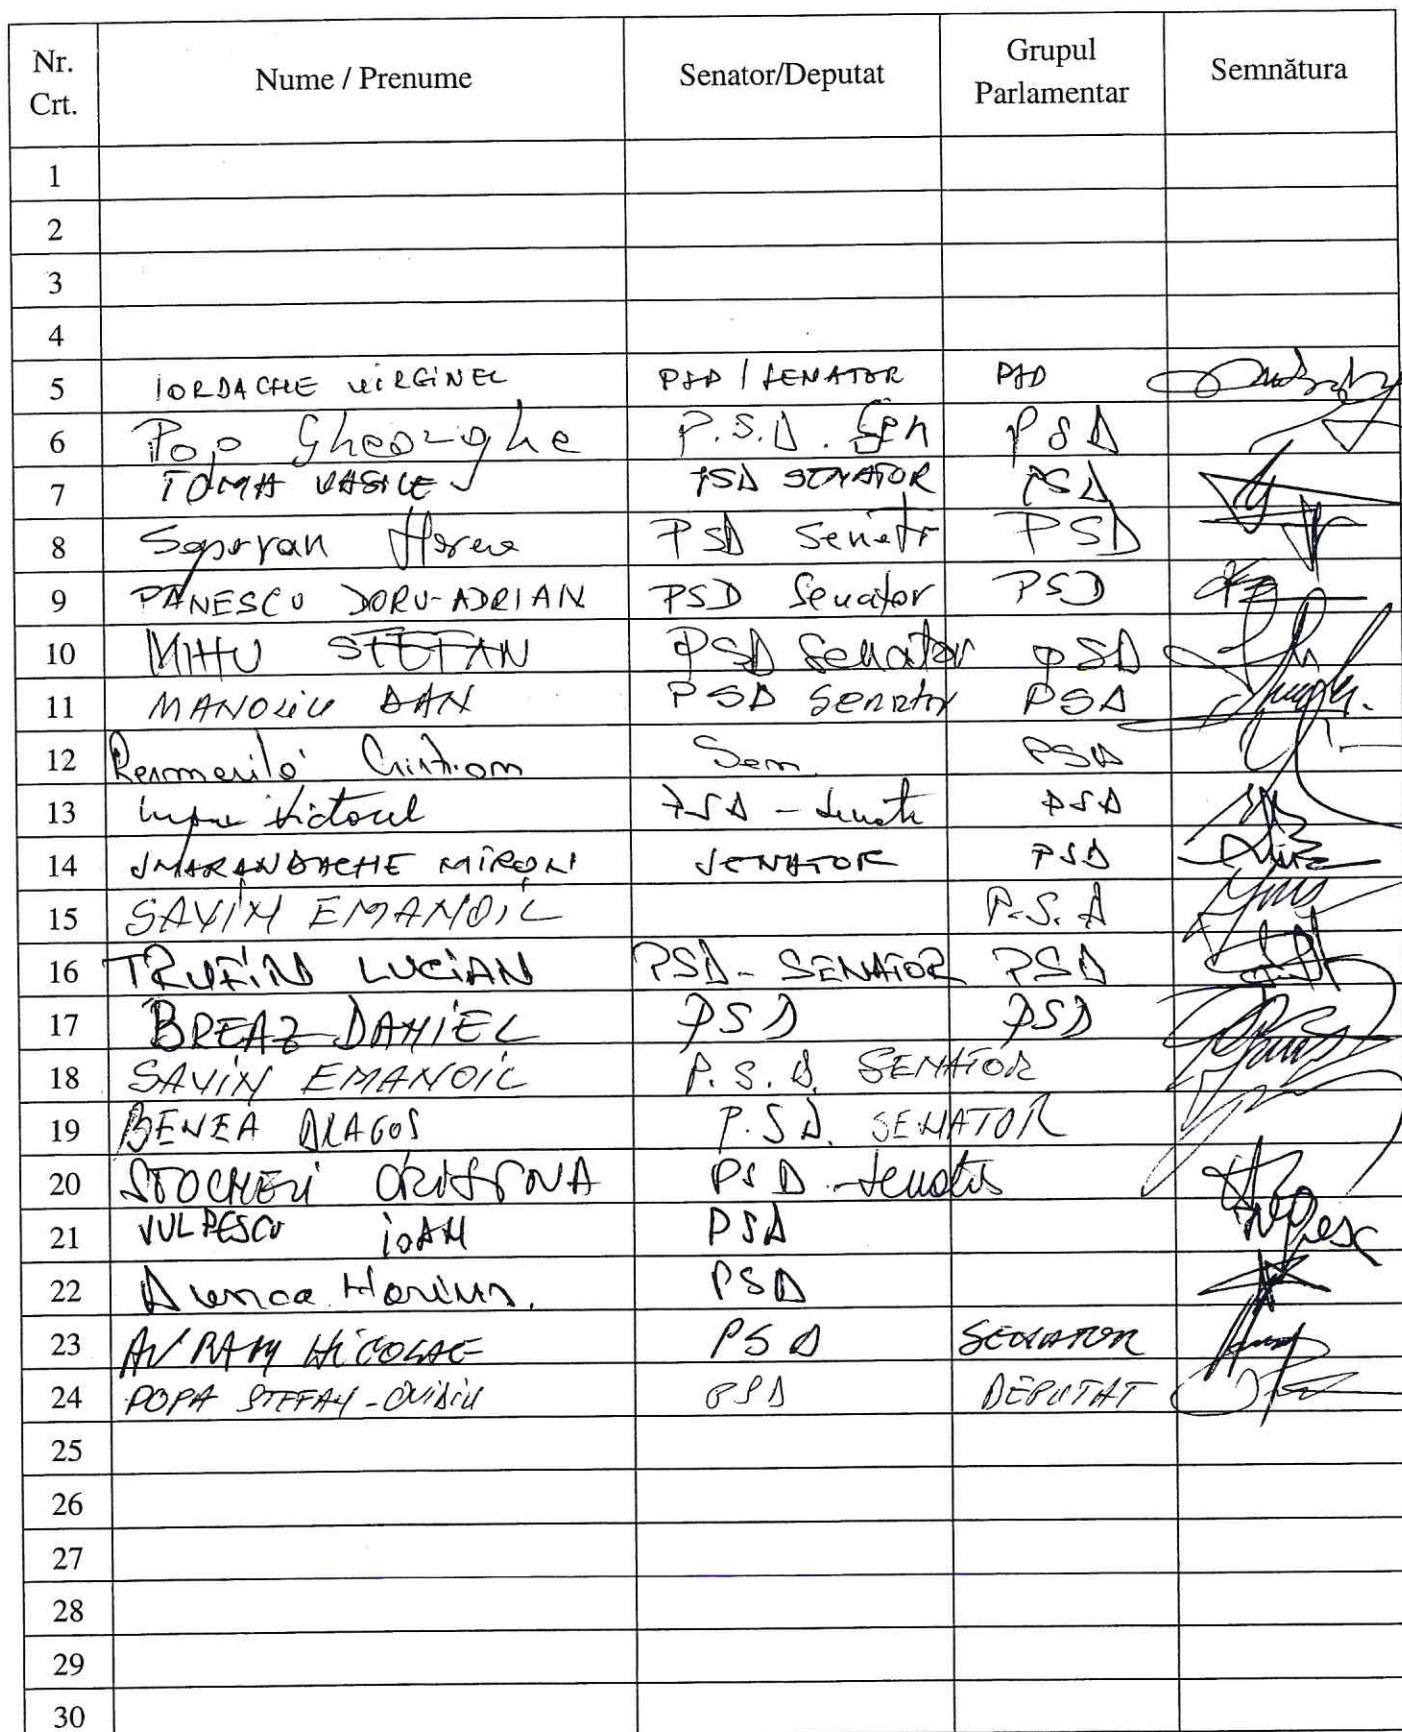 Nr. Crt. Nume / Prenume Senator/Deputat Grupul Parlamentar Semnătura
1
2
3
4
5 IORDACHE VIRGINEL PSD / SENATOR PSD
6 Pop Gheorghe P.S.D. Sen PSD
7 TOMA VASILE PSD SENATOR PSD
8 PSD PSD
9 PANESCU DORU-ADRIAN PSD Senator PSD
10 MIHU STEFAN PSD Senator PSD
11 MANOLIU DAN PSD Senator PSD
12 Resmeriță Cristian Sen. PSD
13 Lupu Victorel PSD - PSD
14 SMARANDACHE MIRON SENATOR PSD
15 SAVIN EMANOIL P.S.D
16 TRUFIN LUCIAN PSD - SENATOR PSD
17 BREAZ DANIEL PSD PSD
18 SAVIN EMANOIL P.S.D. SENATOR
19 BENEA DRAGOS P.S.D. SENATOR
20 PSD - Senator
21 VULPESCU IOAN PSD
22 Dunca Marius. PSD
23 AVRAM NICOLAE PSD SENATOR
24 POPA STEFAN-OVIDIU PSD DEPUTAT
25
26
27
28
29
30